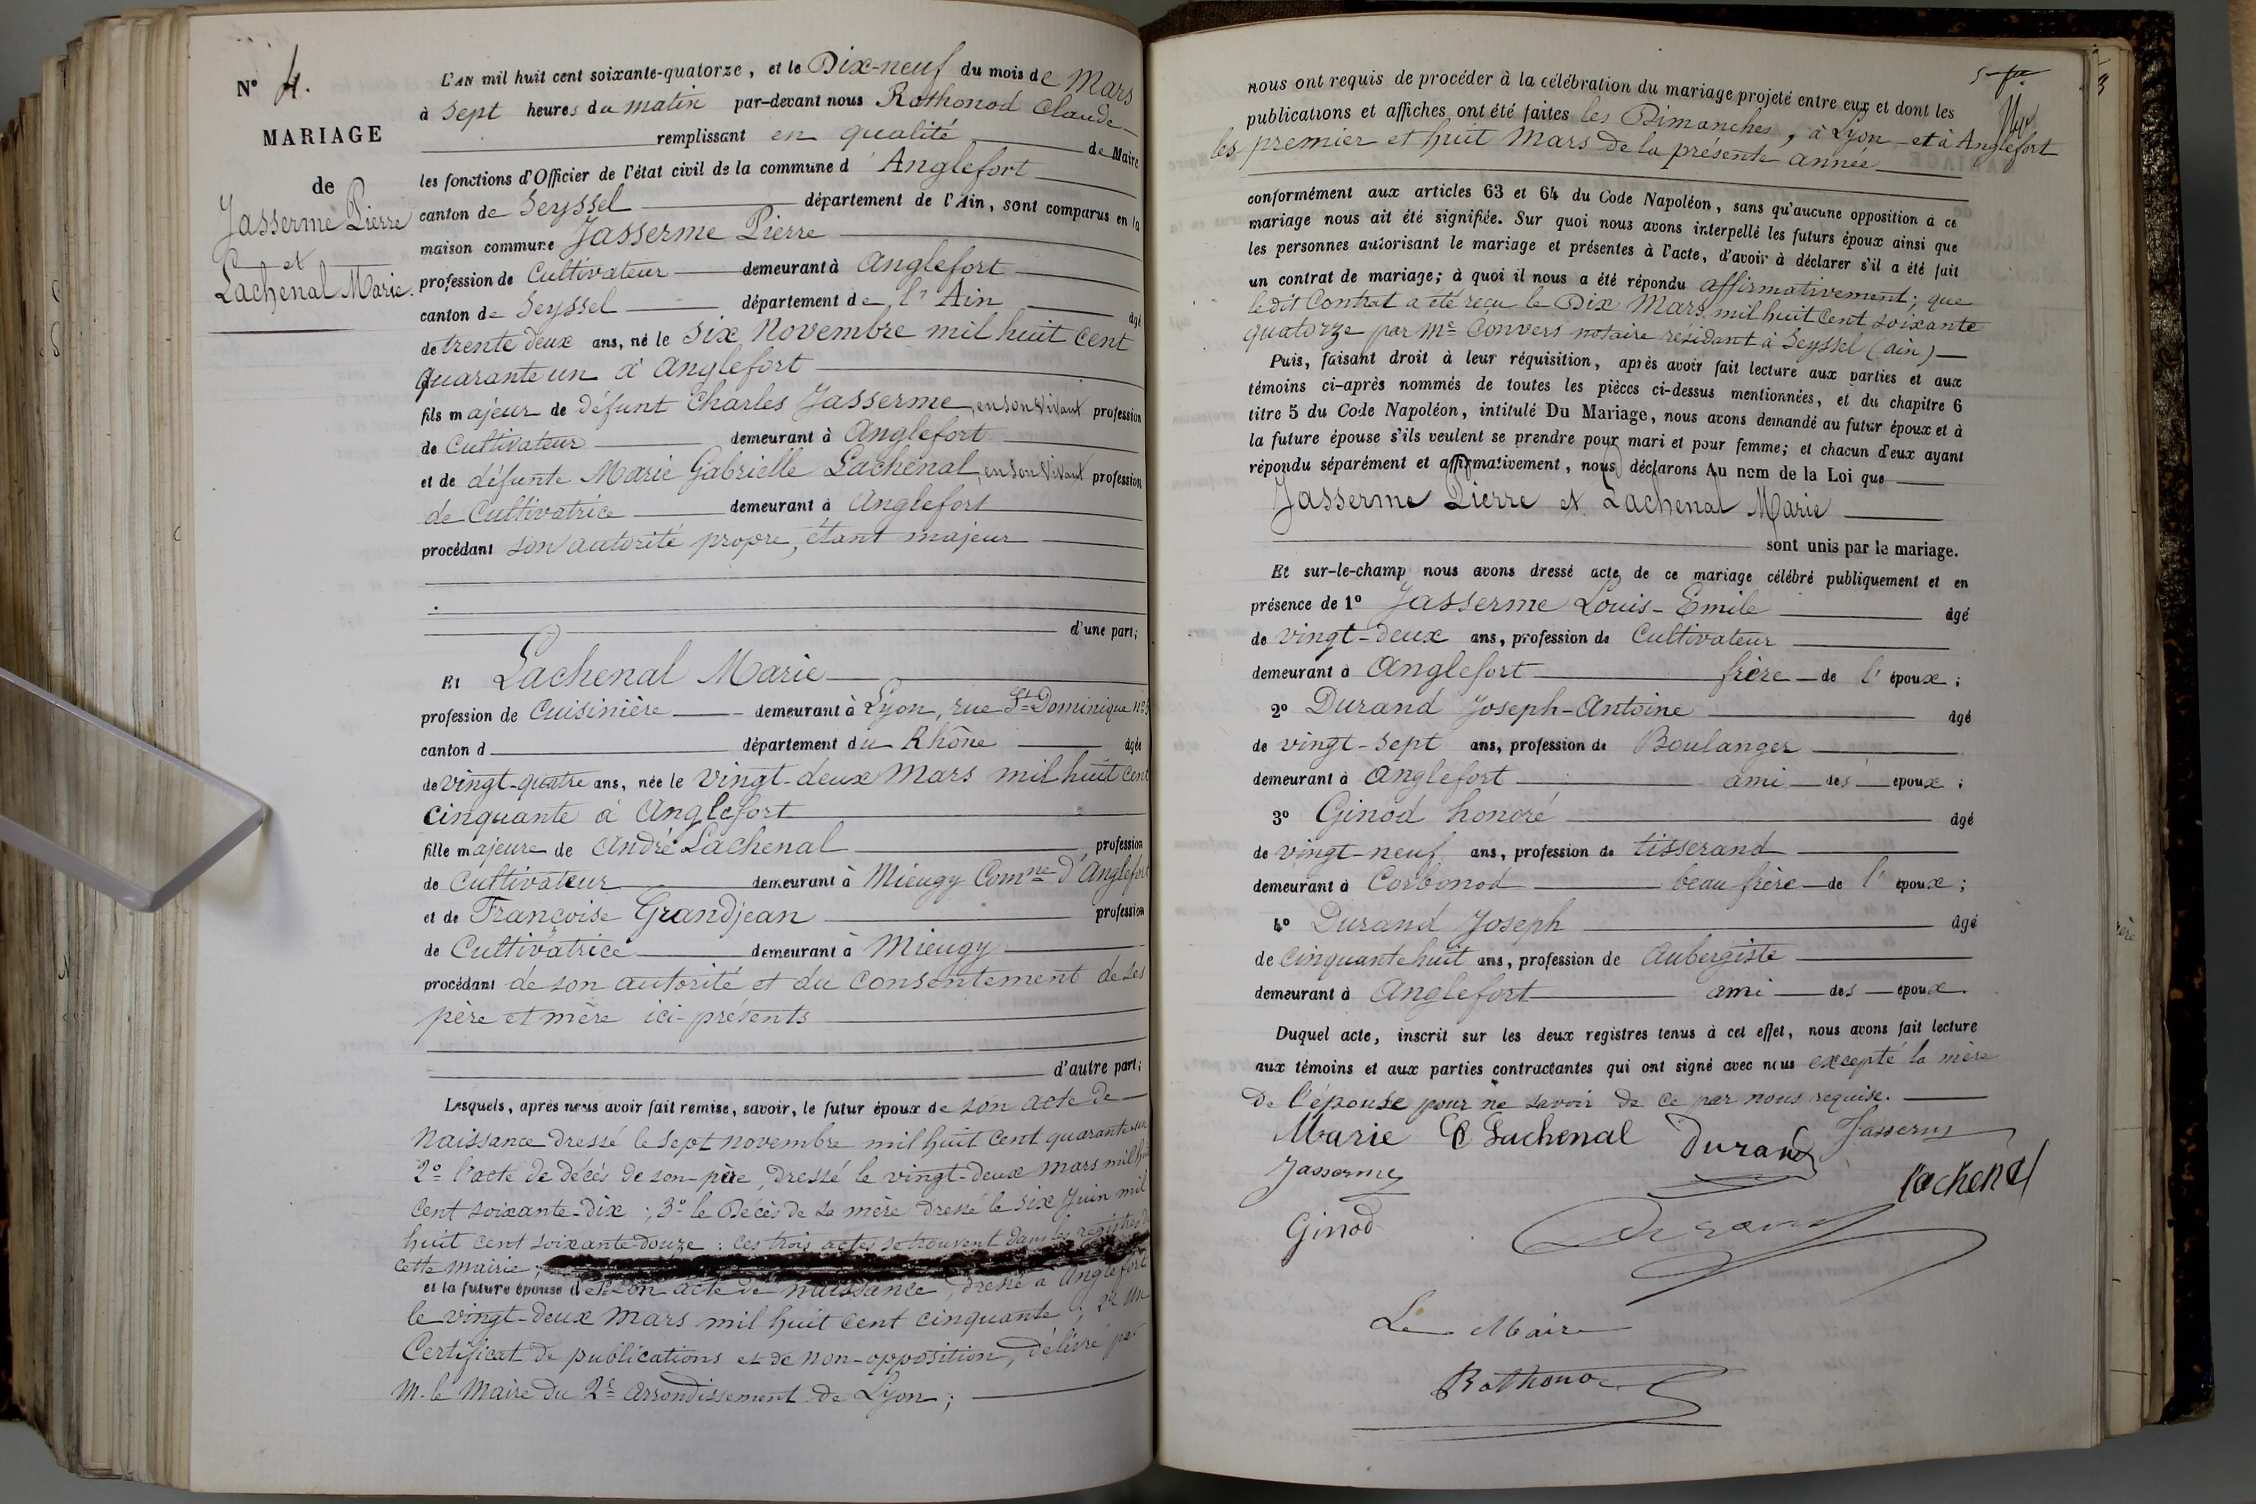 N° 4.
MARIAGE
de
Jasserme Pierre
et
Lachenal Marie.
L'AN mil huit cent soixante-quatorze, et le Dix-neuf du mois de Mars
à sept heures du matin par-devant nous Rothonod Claude
remplissant en qualité de Maire
les fonctions d'Officier de l'état civil de la commune d'Anglefort
canton de Seyssel département de l'Ain, sont comparus en la
maison commune Jasserme Pierre
profession de Cultivateur demeurant à Anglefort
canton de Seyssel département de l'Ain âgé
de trente deux ans, né le six Novembre mil huit cent
quarante un à Anglefort
fils majeur de défunt Charles Jasserme, en son vivant profession
de Cultivateur demeurant à Anglefort
et de défunte Marie Gabrielle Lachenal, en son vivant profession
de Cultivatrice demeurant à Anglefort
procédant son autorité propre, étant majeur
d'une part;
Et Lachenal Marie
profession de Cuisinière demeurant à Lyon, rue St-Dominique n°
canton d département du Rhône âgée
de vingt-quatre ans, née le vingt-deux Mars mil huit cent
cinquante à Anglefort
fille majeure de André Lachenal profession
de Cultivateur demeurant à Mieugy Comne d'Anglefort
et de Françoise Grandjean profession
de Cultivatrice demeurant à Mieugy
procédant de son autorité et du consentement de ses
père et mère ici-présents
d'autre part;
Lesquels, après nous avoir fait remise, savoir, le futur époux de son acte de
Naissance dressé le sept novembre mil huit cent quarante-un
2° l'acte de décès de son père, dressé le vingt-deux mars mil huit
cent soixante-dix; 3° le Décès de sa mère dressé le six Juin mil
huit cent soixante-douze: ces trois actes se trouvent dans les registres de
cette mairie;
et la future épouse de 1° son acte de naissance, dressé à Anglefort
le vingt-deux mars mil huit cent cinquante; 2° un
Certificat de publications et de non-opposition, délivré par
M. le Maire du 2e arrondissement de Lyon;
nous ont requis de procéder à la célébration du mariage projeté entre eux et dont les
publications et affiches ont été faites les Dimanches, à Lyon et à Anglefort
les premier et huit Mars de la présente année
conformément aux articles 63 et 64 du Code Napoléon, sans qu'aucune opposition à ce
mariage nous ait été signifiée. Sur quoi nous avons interpellé les futurs époux ainsi que
les personnes autorisant le mariage et présentes à l'acte, d'avoir à déclarer s'il a été fait
un contrat de mariage; à quoi il nous a été répondu affirmativement; que
ledit Contrat a été reçu le Dix Mars mil huit cent soixante
quatorze par Me Convers notaire résidant à Seyssel (ain)
Puis, faisant droit à leur réquisition, après avoir fait lecture aux parties et aux
témoins ci-après nommés de toutes les pièces ci-dessus mentionnées, et du chapitre 6
titre 5 du Code Napoléon, intitulé Du Mariage, nous avons demandé au futur époux et à
la future épouse s'ils veulent se prendre pour mari et pour femme; et chacun d'eux ayant
répondu séparément et affirmativement, nous déclarons Au nom de la Loi que
Jasserme Pierre et Lachenal Marie
sont unis par le mariage.
Et sur-le-champ nous avons dressé acte de ce mariage célébré publiquement et en
présence de 1° Jasserme Louis-Emile âgé
de vingt-deux ans, profession de Cultivateur
demeurant à Anglefort frère de l'époux;
2° Durand Joseph-Antoine âgé
de vingt-sept ans, profession de Boulanger
demeurant à Anglefort ami des époux;
3° Ginod honoré âgé
de vingt-neuf ans, profession de tisserand
demeurant à Corbonod beau frère de l'époux;
4° Durand Joseph âgé
de cinquante huit ans, profession de Aubergiste
demeurant à Anglefort ami des époux.
Duquel acte, inscrit sur les deux registres tenus à cet effet, nous avons fait lecture
aux témoins et aux parties contractantes qui ont signé avec nous excepté la mère
de l'épouse pour ne savoir de ce par nous requise.
Marie Lachenal Durand Jasserme
Jasserme lachenal
Ginod Durand
Le Maire
Rothonod